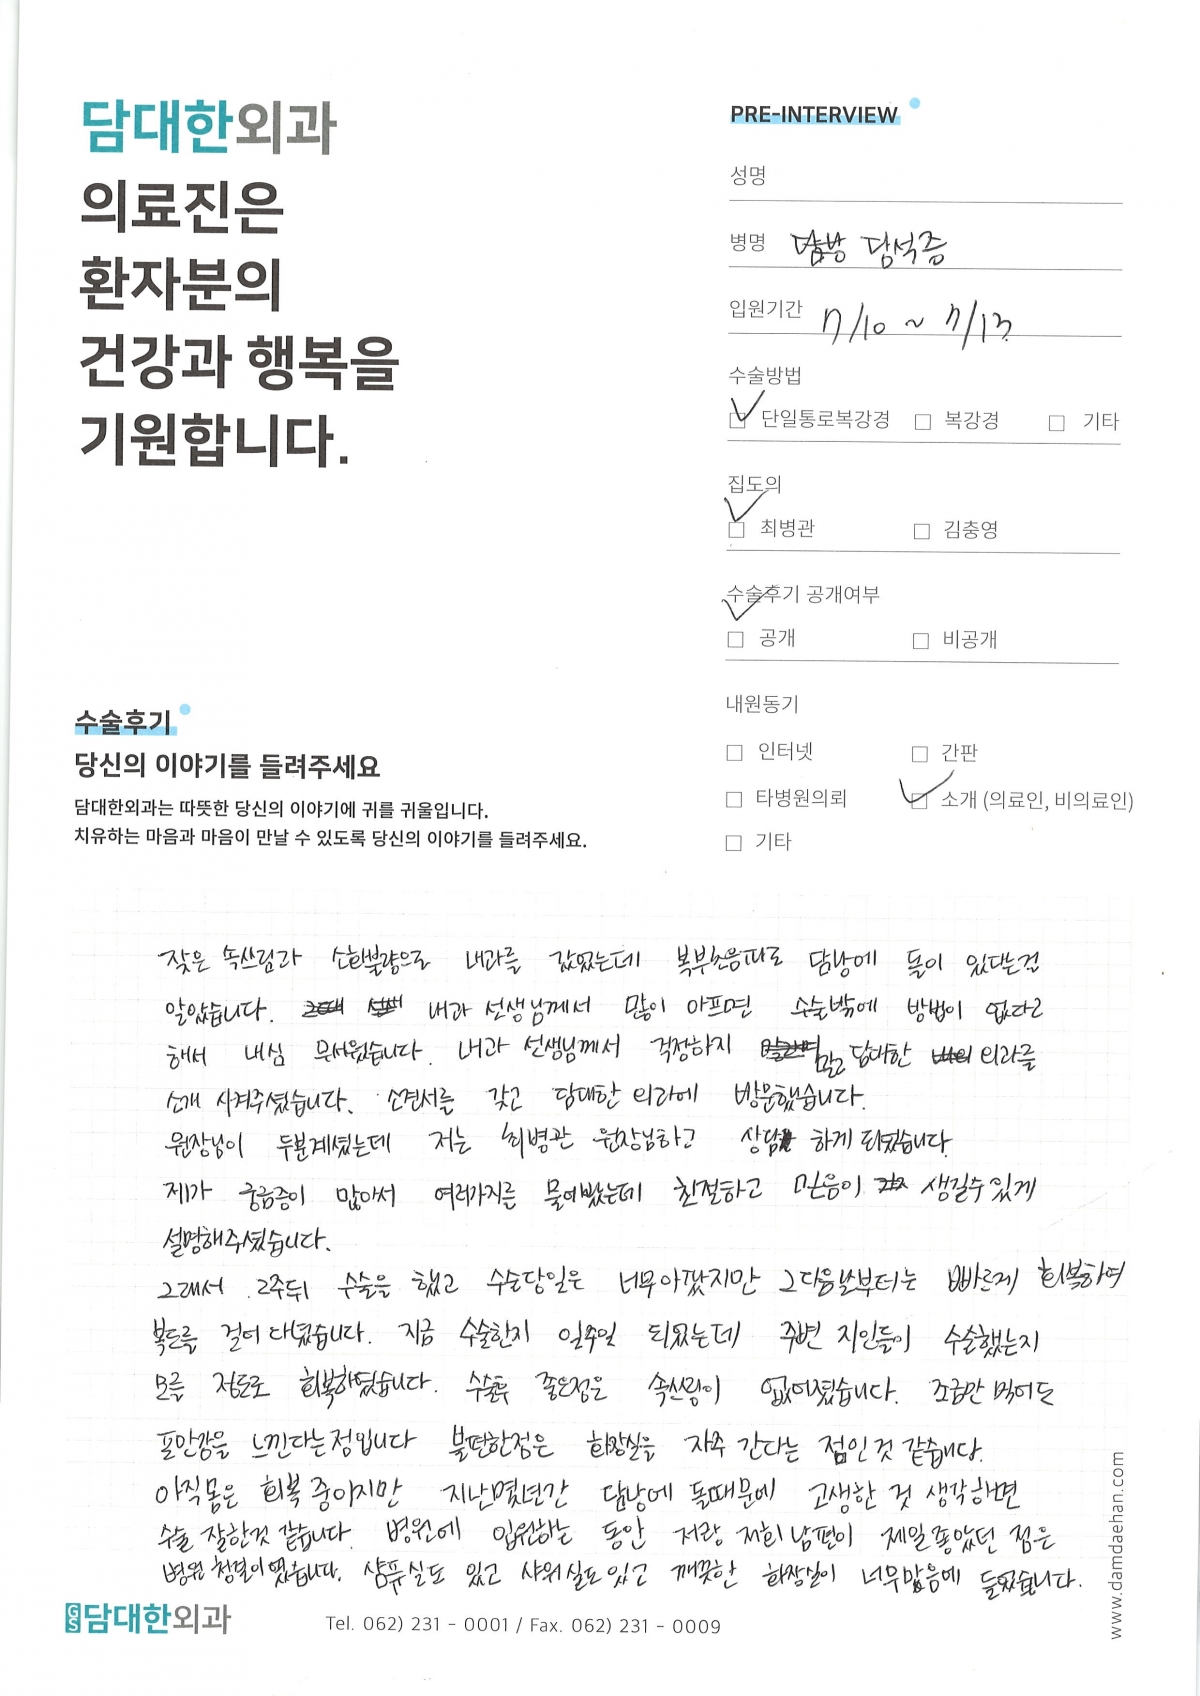 담대한외과
의료진은
환자분의
건강과 행복을
기원합니다.
PRE-INTERVIEW
성명
병명 담낭 담석증
입원기간 7/10 ~ 7/13
수술방법
단일통로복강경 복강경 기타
집도의
최병관 김충영
수술후기 공개여부
공개 비공개
내원동기
인터넷 간판
타병원의뢰 소개 (의료인, 비의료인)
기타
수술후기
당신의 이야기를 들려주세요
담대한외과는 따뜻한 당신의 이야기에 귀를 귀울입니다.
치유하는 마음과 마음이 만날 수 있도록 당신의 이야기를 들려주세요.
잦은 속쓰림과 소화불량으로 내과를 갔었는데 복부초음파로 담낭에 돌이 있다는걸
알았습니다. 내과 선생님께서 많이 아프면 수술밖에 방법이 없다고
해서 내심 무서웠습니다. 내과 선생님께서 걱정하지 말고 담대한 외과를
소개 시켜주셨습니다. 소견서를 갖고 담대한 외과에 방문했습니다.
원장님이 두분계셨는데 저는 최병관 원장님하고 상담 하게 되었습니다.
제가 궁금증이 많아서 여러가지를 물어봤는데 친절하고 믿음이 생길수있게
설명해주셨습니다.
그래서 2주뒤 수술을 했고 수술당일은 너무아팠지만 그다음날부터는 빠르게 회복하여
복도를 걸어 다녔습니다. 지금 수술한지 일주일 되었는데 주변 지인들이 수술했는지
모를 정도로 회복하였습니다. 수술후 좋은점은 속쓰림이 없어졌습니다. 조금만 먹어도
포만감을 느낀다는점입니다 불편한점은 화장실을 자주 간다는 점인것 같습니다.
아직몸은 회복 중이지만 지난몇년간 담낭에 돌때문에 고생한 것 생각하면
수술 잘한것 같습니다. 병원에 입원하는 동안 저랑 저희남편이 제일좋았던 점은
병원 청결이였습니다. 샴푸실도 있고 샤워실도있고 깨끗한 화장실이 너무맘음에 들었습니다.
GS담대한외과
Tel. 062) 231 - 0001 / Fax. 062) 231 - 0009
www.damdaehan.com